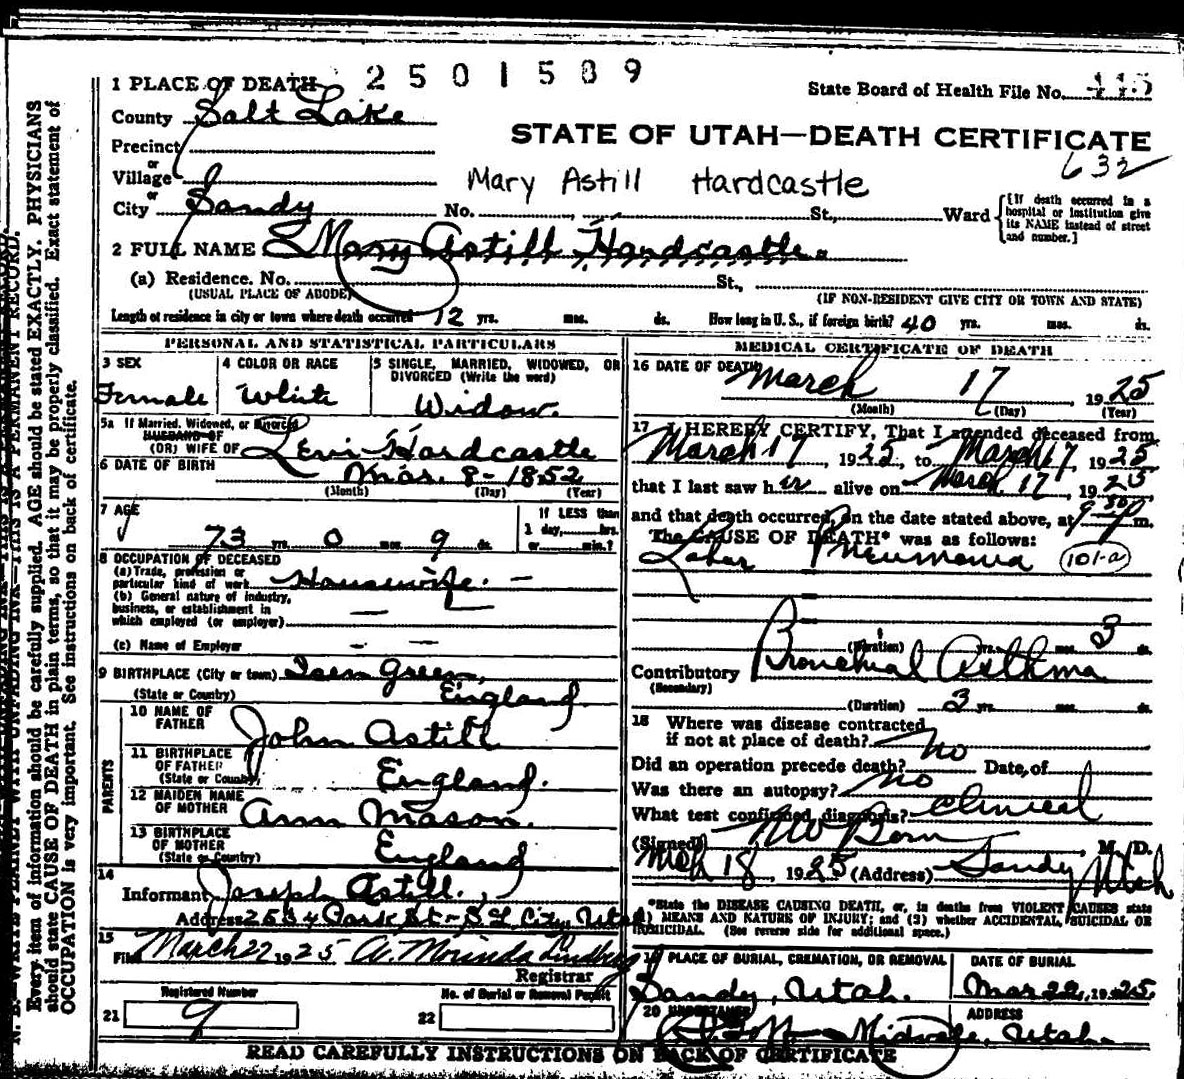 2501589
State Board of Health File No. 445
1 PLACE OF DEATH
County Salt Lake
STATE OF UTAH—DEATH CERTIFICATE
632
Precinct
or
Village
Mary Astill Hardcastle
or
City Sandy No. St., Ward {[If death occurred in a hospital or institution give its NAME instead of street and number.]
2 FULL NAME Mary Astill Hardcastle.
(a) Residence. No. St.,
(USUAL PLACE OF ABODE) (IF NON-RESIDENT GIVE CITY OR TOWN AND STATE)
Length of residence in city or town where death occurred 12 yrs. mos. ds. How long in U. S., if foreign birth? 40 yrs. mos. ds.
PERSONAL AND STATISTICAL PARTICULARS
3 SEX
Female
4 COLOR OR RACE
White
5 SINGLE, MARRIED, WIDOWED, OR
DIVORCED (Write the word)
Widow.
5a If Married, Widowed, or Divorced
HUSBAND OF
(OR) WIFE OF Levi Hardcastle
6 DATE OF BIRTH Mar. 8 - 1852
(Month) (Day) (Year)
7 AGE
73 yrs. 0 mos. 9 ds.
If LESS than
1 day, hrs.
or min.?
8 OCCUPATION OF DECEASED
(a) Trade, profession or
particular kind of work Housewife. —
(b) General nature of industry,
business, or establishment in
which employed (or employer) —
(c) Name of Employer — —
9 BIRTHPLACE (City or town) Green,
(State or Country) England.
PARENTS
10 NAME OF
FATHER John Astill
11 BIRTHPLACE
OF FATHER
(State or Country) England.
12 MAIDEN NAME
OF MOTHER Ann Mason.
13 BIRTHPLACE
OF MOTHER
(State or Country) England
14
Informant Joseph Astill.,
Address 2534 Park St - S L City, Utah
15
Filed March 22 1925 A. Morinda Lindberg
Registrar
Registered Number
21 9
No. of Burial or Removal Permit
22
MEDICAL CERTIFICATE OF DEATH
16 DATE OF DEATH March 17 1925
(Month) (Day) (Year)
17 I HEREBY CERTIFY, That I attended deceased from
March 17, 1925, to March 17, 1925
that I last saw her alive on March 17, 1925
and that death occurred, on the date stated above, at 9 30 P m.
The CAUSE OF DEATH* was as follows:
Lobar Pneumonia (101-a)
(Duration) yrs. mos. 3 ds.
Contributory Bronchial Asthma
(Secondary)
(Duration) 3 yrs. mos. ds.
18 Where was disease contracted
if not at place of death?
Did an operation precede death? no Date of
Was there an autopsy? no
What test confirmed diagnosis? clinical
(Signed) M. D.
Mch 18, 1925 (Address) Sandy Utah
*State the DISEASE CAUSING DEATH, or, in deaths from VIOLENT CAUSES state
(1) MEANS AND NATURE OF INJURY; and (2) whether ACCIDENTAL, SUICIDAL OR
HOMICIDAL. (See reverse side for additional space.)
19 PLACE OF BURIAL, CREMATION, OR REMOVAL
Sandy, Utah.
DATE OF BURIAL
Mar 22, 1925.
20 UNDERTAKER
ADDRESS
Midvale, Utah.
READ CAREFULLY INSTRUCTIONS ON BACK OF CERTIFICATE
N. B.—WRITE PLAINLY WITH UNFADING INK—THIS IS A PERMANENT RECORD.
Every item of information should be carefully supplied. AGE should be stated EXACTLY. PHYSICIANS
should state CAUSE OF DEATH in plain terms, so that it may be properly classified. Exact statement of
OCCUPATION is very important. See instructions on back of certificate.